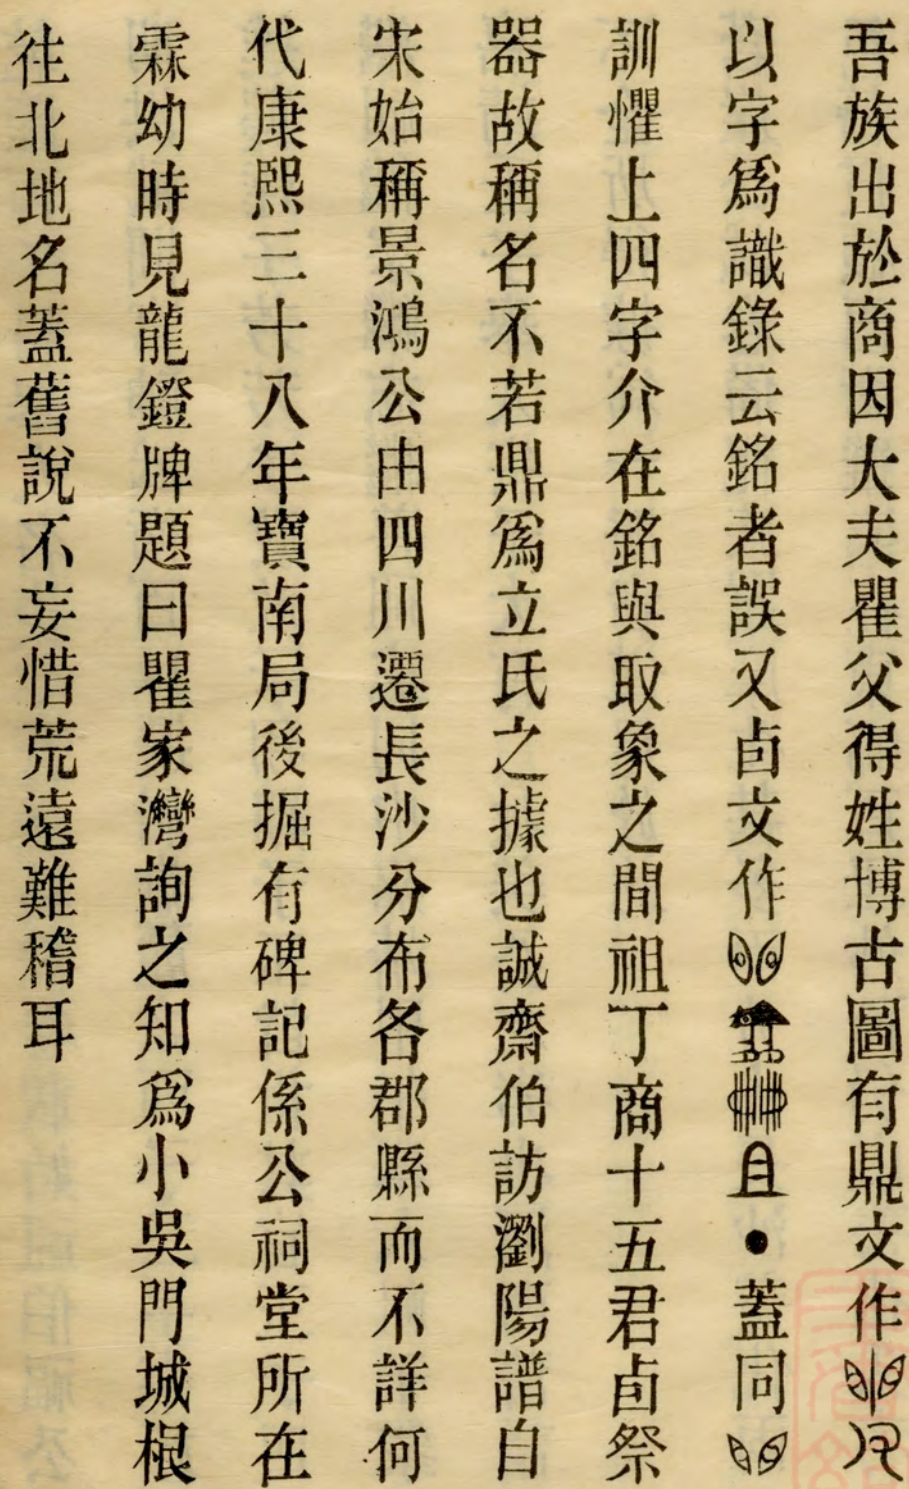 吾族出於商因大夫瞿父得姓博古圖有鼎文作
以字爲識錄云銘者誤又卣文作且●蓋同
訓懼上四字介在銘與取象之間祖丁商十五君卣祭
器故稱名不若鼎爲立氏之據也誠齋伯訪瀏陽譜自
宋始稱景鴻公由四川遷長沙分布各郡縣而不詳何
代康熙三十八年寶南局後掘有碑記係公祠堂所在
霖幼時見龍鐙牌題曰瞿家灣詢之知爲小吳門城根
往北地名蓋舊說不妄惜荒遠難稽耳